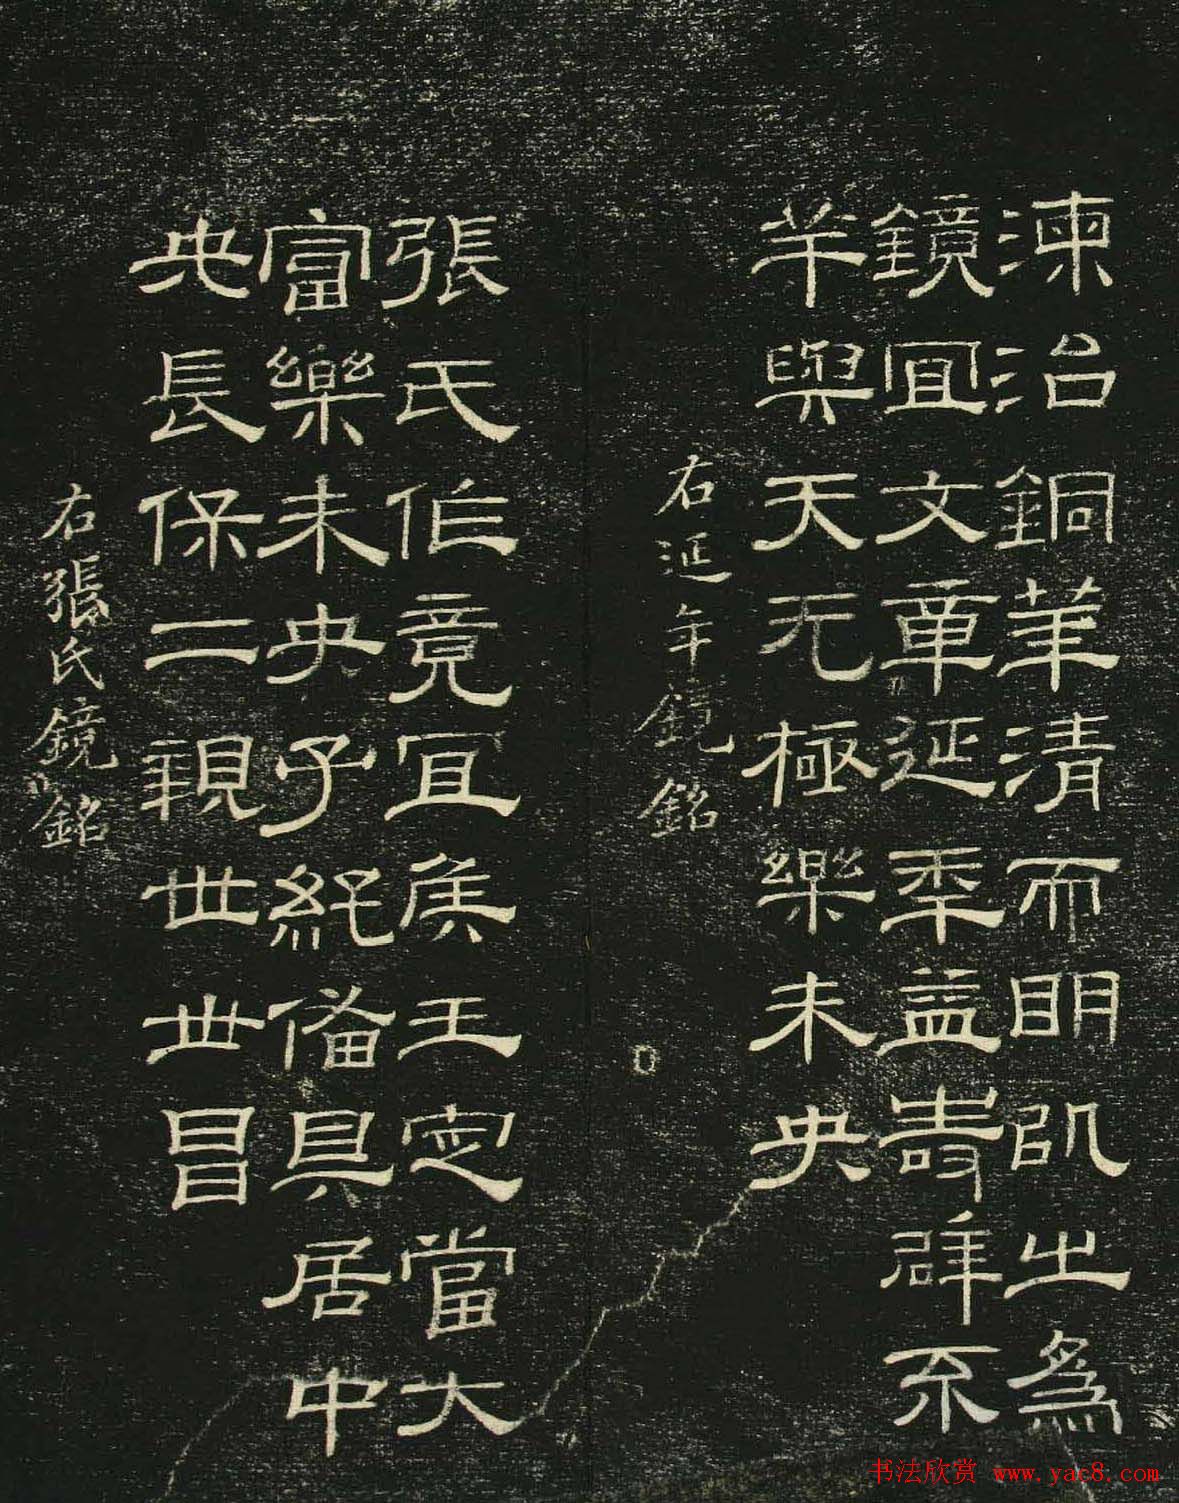 湅治銅華清而明以之為
鏡宜文章延年益壽辟不
羊與天无極樂未央
右延年鏡銘
張氏作竟宜侯王家當大
富樂未央子孫備具居中
央長保二親世世昌
右張氏鏡銘
书法欣赏 www.yac8.com